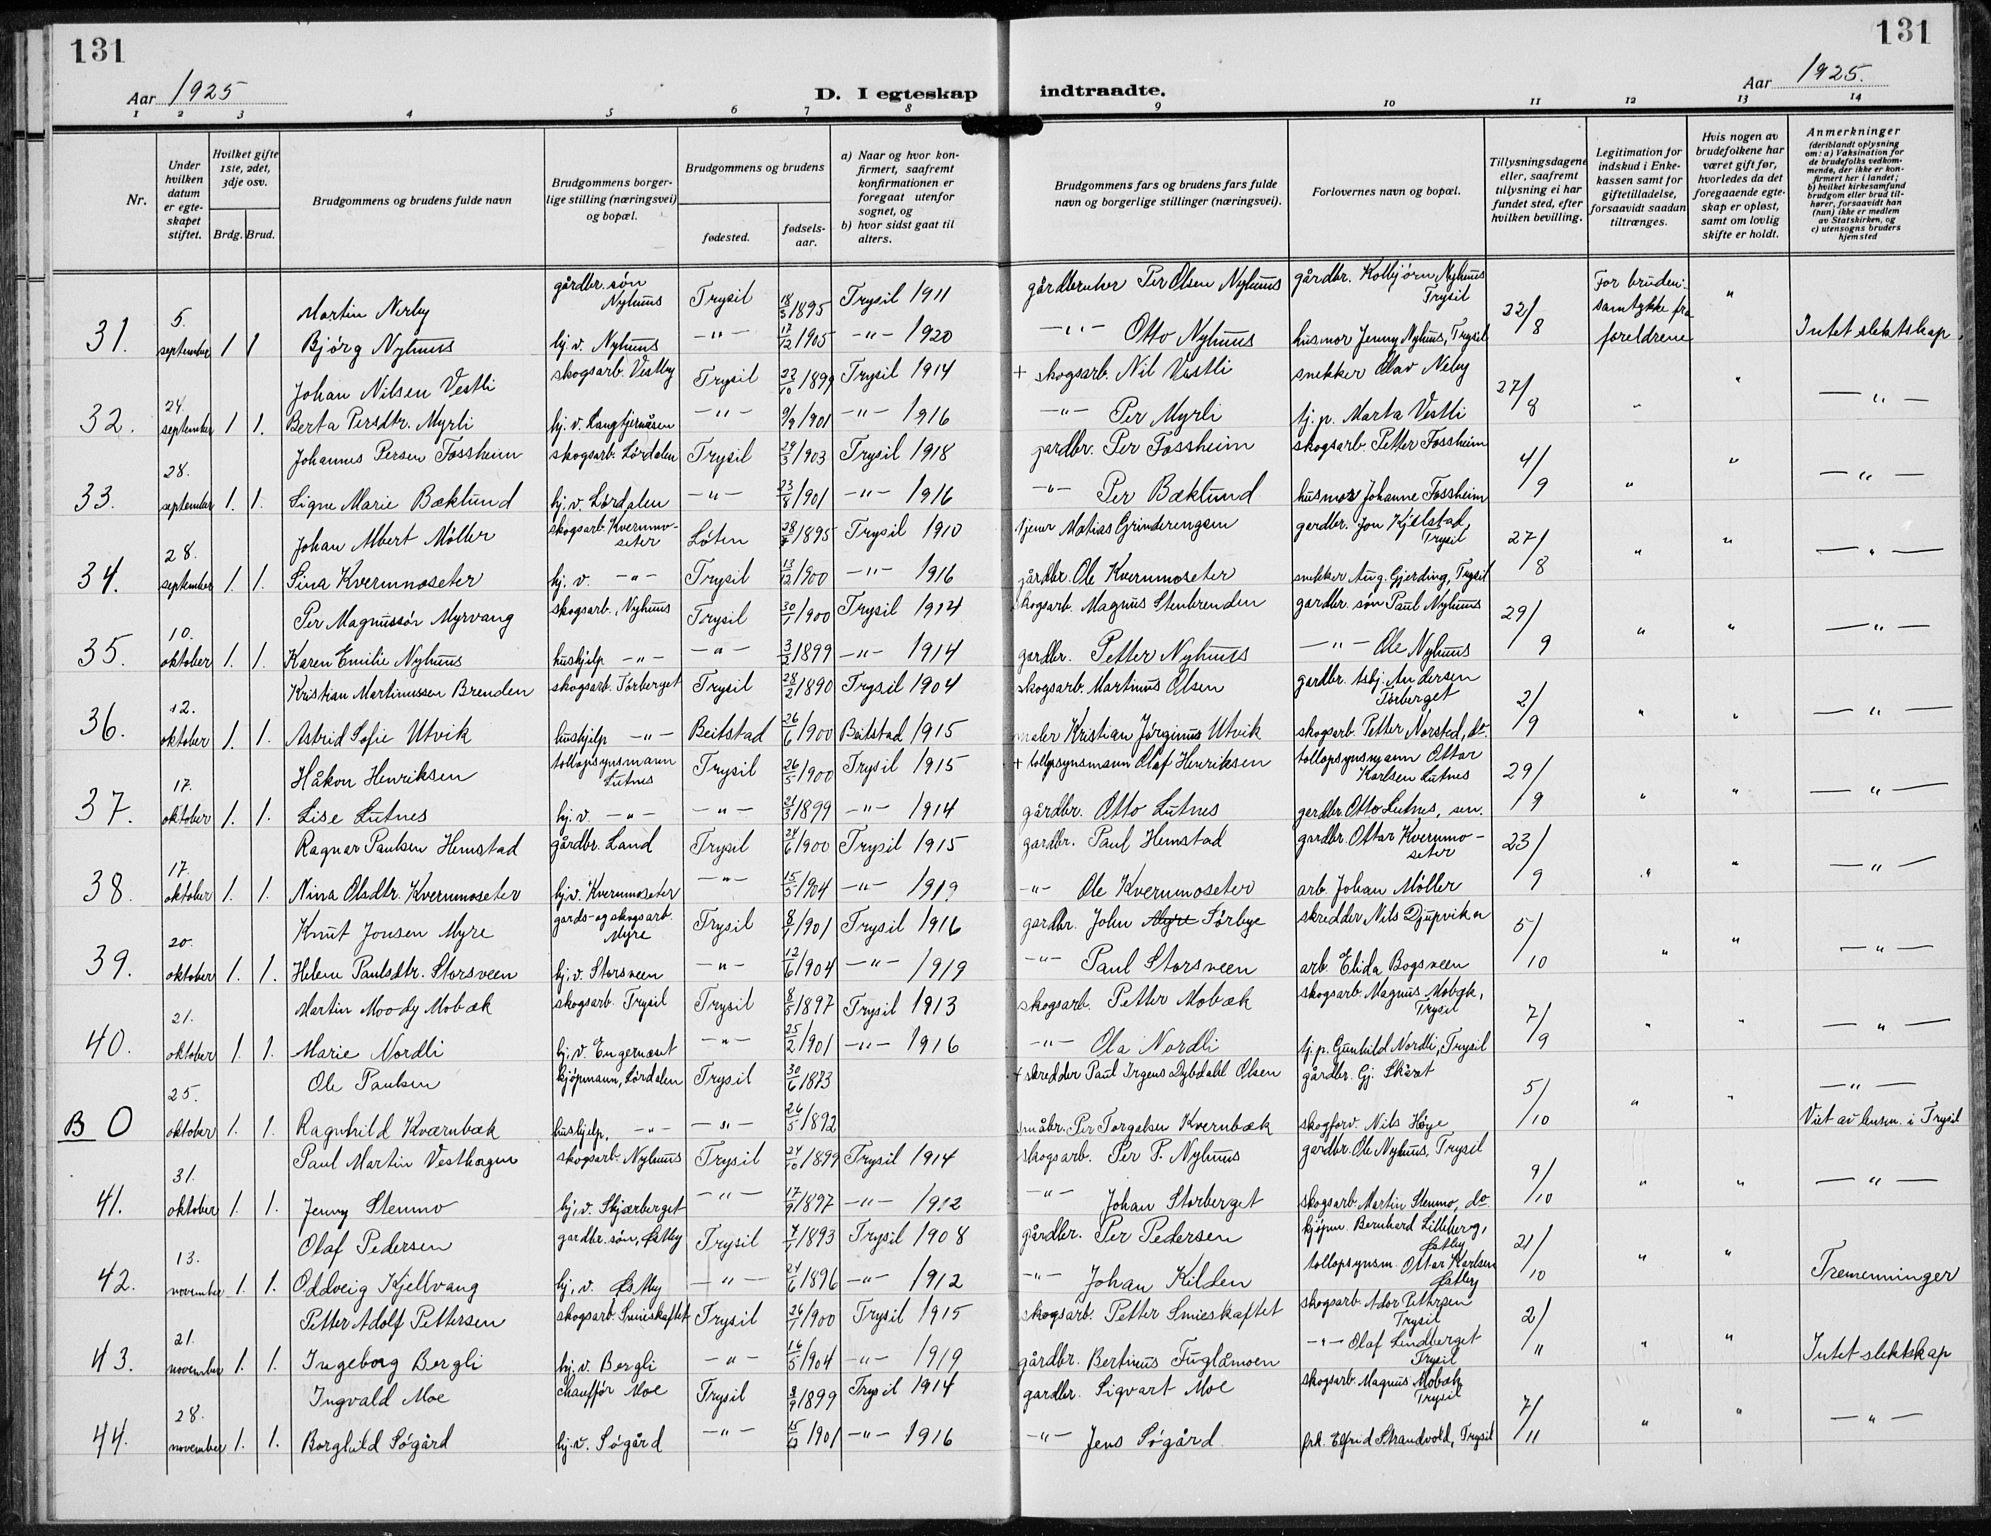 131
131
Aar 1925
D. I egteskap indtraadte.
Aar 1925.
1 2 3 4 5 6 7 8 9 10 11 12 13 14
Nr.
Under hvilken datum er egteskapet stiftet.
Hvilket gifte 1ste, 2det, 3dje osv.
Brdg. Brud.
Brudgommens og brudens fulde navn
Brudgommens borgerlige stilling (næringsvei) og bopæl.
Brudgommens og brudens
fødested.
fødselsaar.
a) Naar og hvor konfirmert, saafremt konfirmationen er foregaat utenfor sognet, og
b) hvor sidst gaat til alters.
Brudgommens fars og brudens fars fulde navn og borgerlige stillinger (næringsvei).
Forlovernes navn og bopæl.
Tillysningsdagene eller, saafremt tillysning ei har fundet sted, efter hvilken bevilling.
Legitimation for indskud i Enkekassen samt for giftetilladelse, forsaavidt saadan tiltrænges.
Hvis nogen av brudefolkene har været gift før, hvorledes da det foregaaende egteskap er opløst, samt om lovlig skifte er holdt.
Anmerkninger (deriblandt oplysning om: a) Vaksination for de brudefolks vedkommende, der ikke er konfirmert her i landet; b) hvilket kirkesamfund brudgom eller brud tilhører, forsaavidt han (hun) ikke er medlem av Statskirken, og c) utensogns bruders hjemsted
Martin Nerby gårdbr. søn Nyhuus Trysil 18/3 1895 Trysil 1911 gårdbruker Per Olsen Nyhuus gårdbr. Kolbjørn Nyhuus Trysil
31. 5. september 1 1 Bjørg Nyhuus hj. v. Nyhuus -"- 17/12 1905 -"- 1920 -"- Otto Nyhuus husmor Jenny Nyhuus, Trysil 22/8 For bruden: samtykke fra foreldrene " Intet slektskap
Johan Nilsen Vestli skogsarb. Vestby Trysil 22/10 1899 Trysil 1914 + skogsarb. Nil Vestli snekker Olav Neby
32. 24. september 1 1. Berta Persdtr. Myrli hj. v. Langtjernåsen -"- 9/9 1901 -"- 1916 -"- Per Myrli tj. p. Marta Vestli 27/8 " " -"-
Johannes Persen Fossheim skogsarb. Lørdalen Trysil 29/3 1903 Trysil 1918 gardbr. Per Fossheim skogsarb. Petter Fossheim
33. 28. september 1. 1. Signe Marie Bæklund hj. v. Lørdalen -"- 23/8 1901 -"- 1916 -"- Per Bæklund husmor Johanne Fossheim 4/9 " " -"-
Johan Albert Möller skogsarb. Kvernmoseter Løten 28/7 1895 Trysil 1910 tjener Matias Grinderengsen gardbr. Jon Kjelstad, Trysil
34. 28. september 1. 1. Sina Kvernmoseter hj. v. -"- Trysil 13/12 1900 -"- 1916 gårdbr. Ole Kvernmoseter snekker Aug. Gjerding, Trysil 27/8 " " -"-
Per Magnussön Myrvang skogsarb., Nyhuus Trysil 30/1 1900 Trysil 1914 skogsarb. Magnus Stenbrenden gardbr. søn Paul Nyhuus
35. 10. oktober 1. 1. Karen Emilie Nyhuus hushjelp -"- -"- 3/2 1899 -"- 1914 gardbr. Petter Nyhuus -"- Ole Nyhuus 29/9 " " -"-
Kristian Martinussen Brenden skogsarb. Tørberget Trysil 28/2 1890 Trysil 1904 skogsarb. Martinus Olsen gardbr. Asbj. Andersen Tørberget
36. 12. oktober 1. 1. Astrid Sofie Utvik hushjelp -"- Beitstad 26/6 1900 Beitstad 1915 maler Kristian Jørginus Utvik skogsarb. Petter Norsted, do. 2/9 " " -"-
Håkon Henriksen tollopsynsmann Lutnes Trysil 26/5 1900 Trysil 1915 + tollopsynsmann Olaf Henriksen tollopsynsmann Ottar Karlsen Lutnes
37. 17. oktober 1. 1. Lise Lutnes hj. v. -"- -"- 21/3 1899 -"- 1914 gårdbr. Otto Lutnes gardbr. Otto Lutnes, sen. 29/9 " " -"-
Ragnar Paulsen Hemstad gårdbr. Land Trysil 24/6 1900 Trysil 1915 gardbr. Paul Hemstad gardbr. Ottar Kvernmoseter
38. 17. oktober 1. 1. Nina Olsdtr. Kvernmoseter hj. v. Kvernmoseter -"- 15/5 1904 -"- 1919 -"- Ole Kvernmoseter arb. Johan Möller 23/9 " " -"-
Knut Jonsen Myre gards- og skogsarb. Myre Trysil 8/1 1901 Trysil 1916 gardbr. John Myre Sørbye skredder Nils Djupviken
39. 20. oktober 1. 1. Helene Paulsdtr. Storsveen hj. v. Storsveen -"- 12/6 1904 -"- 1919 -"- Paul Storsveen arb. Elida Bogsveen 5/10 " " -"-
Martin Moody Mobæk skogsarb. Trysil Trysil 8/5 1897 Trysil 1913 skogsarb. Petter Mobæk skogsarb. Magnus Mobæk, Trysil
40. 21. oktober 1. 1. Marie Nordli hj. v. Engerneset -"- 25/2 1901 -"- 1916 -"- Ola Nordli tj. p. Gunhild Nordli, Trysil 7/9 " " -"-
Ole Paulsen kjöpmann, Lørdalen Trysil 30/6 1873 + skredder Paul Irgens Dybdahl Olsen gårdbr. Gj. Skåret
B 0 25. oktober 1. 1. Ragnhild Kværnbæk hushjelp, -"- -"- 26/5 1892 småbr. Per Torgalsen Kvernbæk skogforv. Nils Höye 5/10 " " -"- Viet av lensm. i Trysil
Paul Martin Vesthagen skogsarb. Nyhuus Trysil 24/10 1899 Trysil 1914 skogsarb. Per P. Nyhuus gardbr. Ole Nyhuus, Trysil
41. 31. oktober 1. 1. Jenny Stenmo hj. v. Skjærberget -"- 17/9 1897 -"- 1912 -"- Johan Storberget skogsarb. Martin Stenmo, do. 9/10 " " -"-
Olaf Pedersen gardbr. søn, Østby Trysil 7/1 1893 Trysil 1908 gårdbr. Per Pedersen kjöpm. Bernhard Lilleberg, Østby
42. 13. november 1. 1. Oddveig Kjellvang hj. v. Østby -"- 24/6 1896 -"- 1912 -"- Johan Kilden tollopsynsm. Ottar Karlsen Østby 21/10 " " Tremenninger
Petter Adolf Pettersen skogsarb. Smieskaftet Trysil 26/1 1900 Trysil 1915 skogsarb. Petter Smieskaftet skogsarb. Ador Pettersen Trysil
43. 21. november 1. 1. Ingeborg Bergli hj. v. Bergli -"- 16/5 1904 -"- 1919 gårdbr. Bertinus Fuglåmoen -"- Olaf Lindberget Trysil 2/11 " " Intet slektskap
Ingvald Moe chauffør Moe Trysil 3/9 1899 Trysil 1914 gardbr. Sigvart Moe skogsarb. Magnus Mobæk Trysil
44. 28. november 1. 1. Borghild Sögård hj. v. Sögård -"- 15/12 1901 -"- 1916 -"- Jens Sögård frk. Elfrid Strandvold, Trysil 7/11 " " -"-